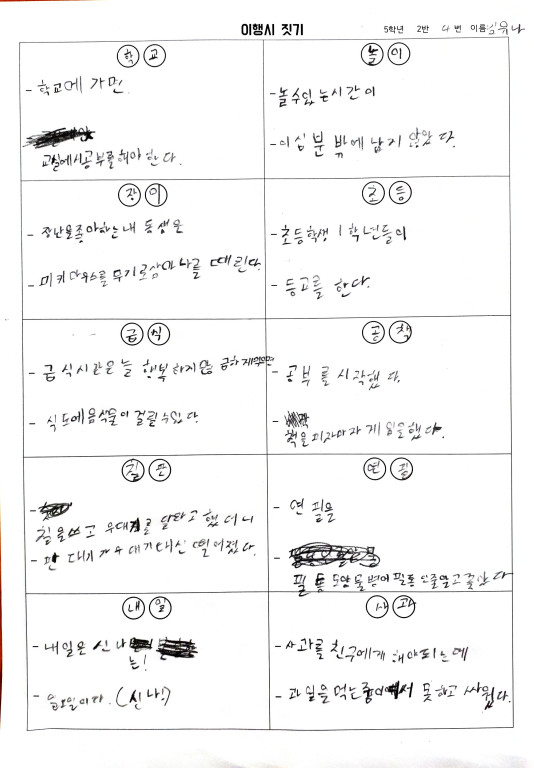 이행시 짓기 5학년 2반 4번 이름
학교
- 학교에 가면
교실에서 공부를 해야 한다.
놀이
- 놀 수 있는 시간이
- 이십 분 밖에 남지 않았다.
장이
- 장난을 좋아하는 내 동생은
- 미키마우스를 무기로 삼아 나를 때린다.
초등
- 초등학생 1학년들이
- 등교를 한다.
급식
- 급식시간은 늘 행복하지만 급하게 먹으면
- 식도에 음식물이 걸릴 수 있다.
공책
- 공부를 시작했다.
- 책을 피자마자 게임을 했다.
칠판
칠을 쓰고 우대를 달라고 했더니
- 판 대기가 대신 떨어졌다.
연필
- 연필을
필통 모양 물병에 필통 인줄 알고 꽂았다
내일
- 내일은 신나
는!
- 일요일이다. (신나!)
사과
- 사과를 친구에게 해야 되는데
- 과일을 먹는 중이여서 못하고 싸웠다.